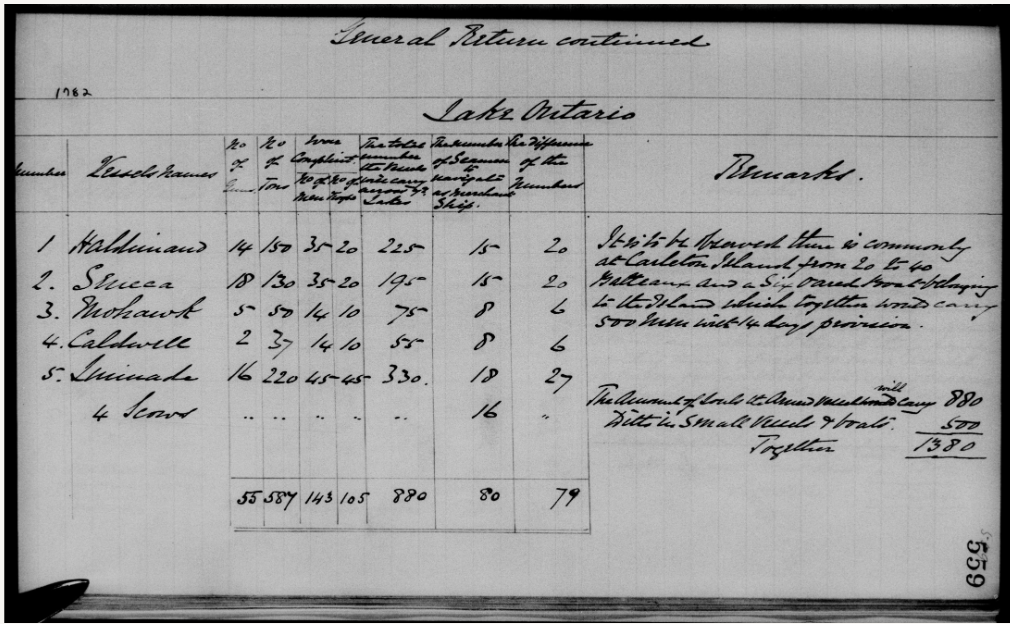 General Return continued
1782
Lake Ontario
Number Vessels names No of Guns No of Tons Compliment No of Men No of Troops The total number the Vessels will carry across ye Lakes The number of Seamen to navigate as Merchant Ship. The difference of the Numbers Remarks.
1 Haldimand 14 150 35 20 225 15 20
2. Seneca 18 130 35 20 195 15 20
3. Mohawk 5 50 14 10 75 8 6
4. Caldwell 2 37 14 10 55 8 6
5. Limnade 16 220 45 45 330. 18 27
4 Scows .. .. " " .. 16 "
55 587 143 105 880 80 79
It is to be observed there is commonly
at Carleton Island from 20 to 40
Batteaux and a Six oared Boat belonging
to the Island which together would carry
500 Men with 14 days provision.
The Amount of Souls the Armed Vessels will carry 880
Ditto in Small Vessels & boats. 500
Together 1380
559